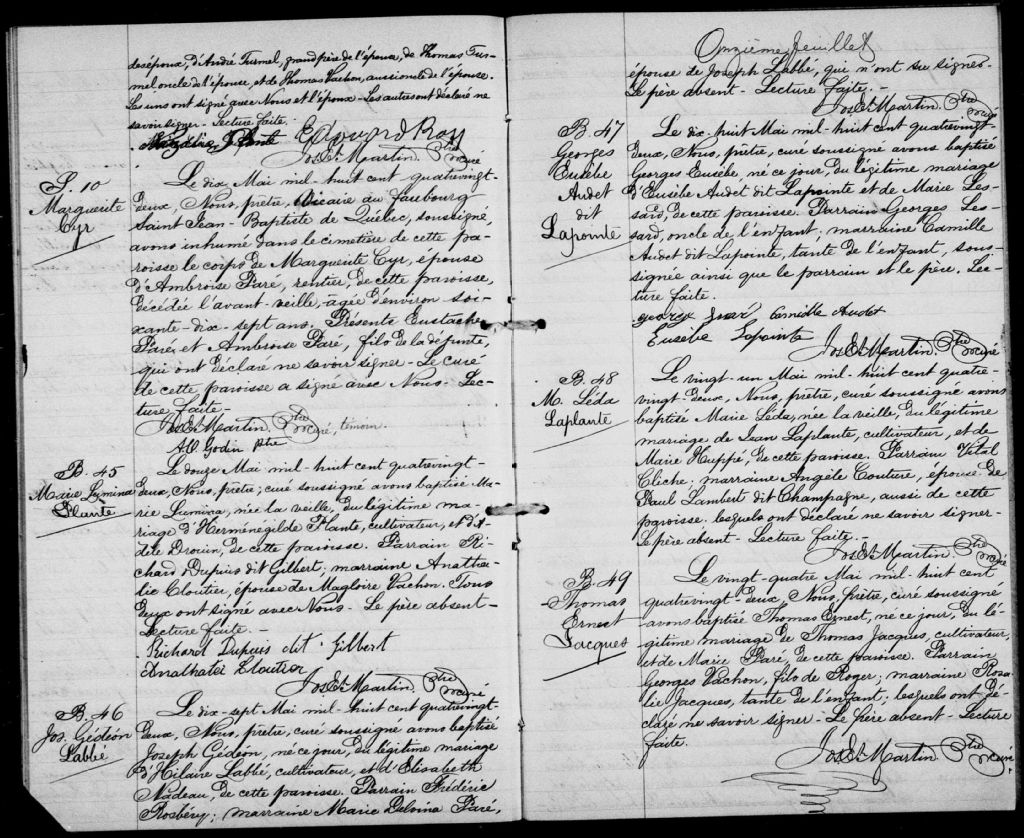 des époux, d'André Turmel, grand père de l'épouse, de Thomas Tur-
mel oncle de l'épouse, et de Thomas Vachon, aussi oncle de l'épouse.
Les uns ont signé avec Nous et l'époux - Les autres ont déclaré ne
savoir signer - Lecture faite.
Edouard Roy
Jos. Et. Martin. Ptre curé
S. 10
Marguerite
Cyr
Le dix Mai mil-huit cent quatrevingt-
deux, Nous, prêtre, Vicaire du faubourg
Saint Jean-Baptiste de Québec, soussigné
avons inhumé dans le cimetière de cette pa-
roisse le corps de Marguerite Cyr, épouse
d'Ambroise Paré, rentier, de cette paroisse,
décédée l'avant-veille, âgée d'environ soi-
xante-dix-sept ans. Présents Eustache
Paré, et Ambroise Paré, fils de la défunte,
qui ont déclaré ne savoir signer - Le curé
de cette paroisse a signé avec Nous - Lec-
ture faite -
Jos. Et. Martin. Ptre curé, témoin.
A.O. Godin ptre
B. 45
Marie Lumina
Plante
Le douze Mai mil-huit cent quatrevingt-
deux, Nous, prêtre, curé soussigné avons baptisé Ma-
rie Lumina, née la veille, du légitime ma-
riage d'Herménégilde Plante, cultivateur, et d'A-
dèle Drouin, de cette paroisse. Parrain Ri-
chard Dupuis dit Gilbert; marraine Anatha-
lie Cloutier, épouse de Magloire Vachon. Tous
deux ont signé avec Nous - Le père absent -
Lecture faite. -
Richard Dupuis dit Gilbert
Anathalei Cloutier
Jos. Et. Martin. Ptre curé
B. 46
Jos. Gédéon
Labbé
Le dix-sept Mai mil-huit cent quatrevingt-
deux, Nous, prêtre, curé soussigné avons baptisé
Joseph Gédéon, né ce jour, du légitime mariage
d'Hilaire Labbé, cultivateur, et d'Elisabeth
Nadeau, de cette paroisse. Parrain Frédéric
Rosbéry; marraine Marie Delvina Paré,
Onzième feuillet
épouse de Joseph Labbé, qui n'ont su signer -
Le père absent - Lecture faite. -
Jos. Et. Martin. Ptre curé
B. 47
Georges
Eusèbe
Audet
dit
Lapointe
Le dix-huit Mai mil-huit cent quatrevingt-
deux, Nous, prêtre, curé soussigné avons baptisé
Georges Eusèbe, né ce jour, du légitime mariage
d'Eusèbe Audet dit Lapointe et de Marie Les-
sard, de cette paroisse. Parrain Georges Les-
sard, oncle de l'enfant; marraine Camille
Audet dit Lapointe, tante de l'enfant, sous-
signée ainsi que le parrain et le père. Lec-
ture faite.
Camille Audet
Eusèbe Lapointe
Jos. Et. Martin. Ptre curé
B. 48
M. Léda
Laplante
Le vingt-un Mai mil-huit cent quatre-
vingt-deux, Nous, prêtre, curé soussigné avons
baptisé Marie Léda, née la veille, du légitime
mariage de Jean Laplante, cultivateur, et de
Marie Huppé, de cette paroisse. Parrain Vital
Cliche; marraine Angèle Couture, épouse de
Paul Lambert dit Champagne, aussi de cette
paroisse. lesquels ont déclaré ne savoir signer -
Le père absent - Lecture faite. -
Jos. Et. Martin. Ptre curé
B. 49
Thomas
Ernest
Jacques
Le vingt-quatre Mai mil-huit cent
quatrevingt-deux, Nous, Prêtre, curé soussigné
avons baptisé Thomas Ernest, né ce jour, du lé-
gitime mariage de Thomas Jacques, cultivateur,
et de Marie Paré, de cette paroisse. Parrain
Georges Vachon, fils de Roger; marraine Rosa-
lie Jacques, tante de l'enfant; lesquels ont dé-
claré ne savoir signer - Le père absent - Lecture
faite.
Jos. Et. Martin. Ptre curé